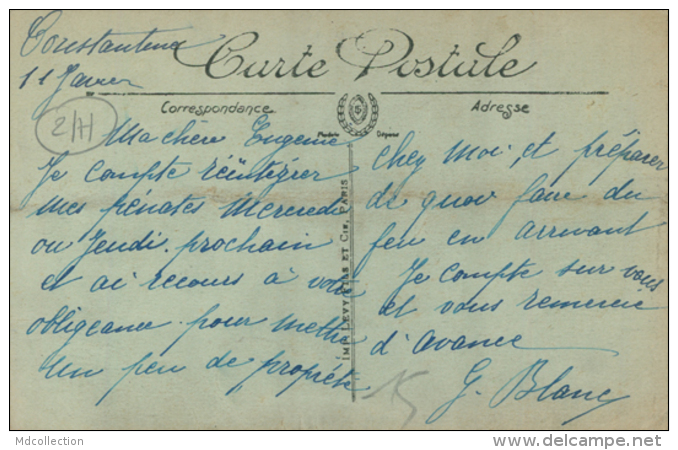 Constantine
11 Janvier
Carte Postale
Correspondance
Adresse
2/71
Modèle Déposé
Ma chère Eugénie
Je compte réintégrer
mes pénates Mercredi
ou Jeudi prochain
et ai recours à votre
obligeance pour mettre
un peu de propreté
IMP. LEVY FILS ET CIE, PARIS
chez moi, et préparer
de quoi faire du
feu en arrivant
Je compte sur vous
et vous remercie
d'avance
G. Blanc
Mdcollection
www.delcampe.net